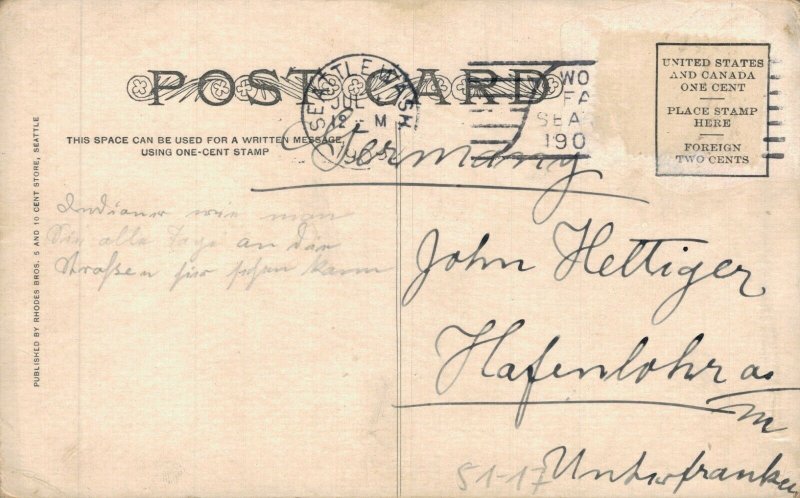 POST CARD
SEATTLE WASH.
JUL
12 - M
190
WO
FA
SEA
190
UNITED STATES
AND CANADA
ONE CENT
PLACE STAMP
HERE
FOREIGN
TWO CENTS
THIS SPACE CAN BE USED FOR A WRITTEN MESSAGE,
USING ONE-CENT STAMP
PUBLISHED BY RHODES BROS. 5 AND 10 CENT STORE, SEATTLE
Indianer wie man
Sie alle Tage an den
Straßen hir sehen kann
Germany
John Hettiger
Hafenlohr a.
m
Unterfranken
51-17